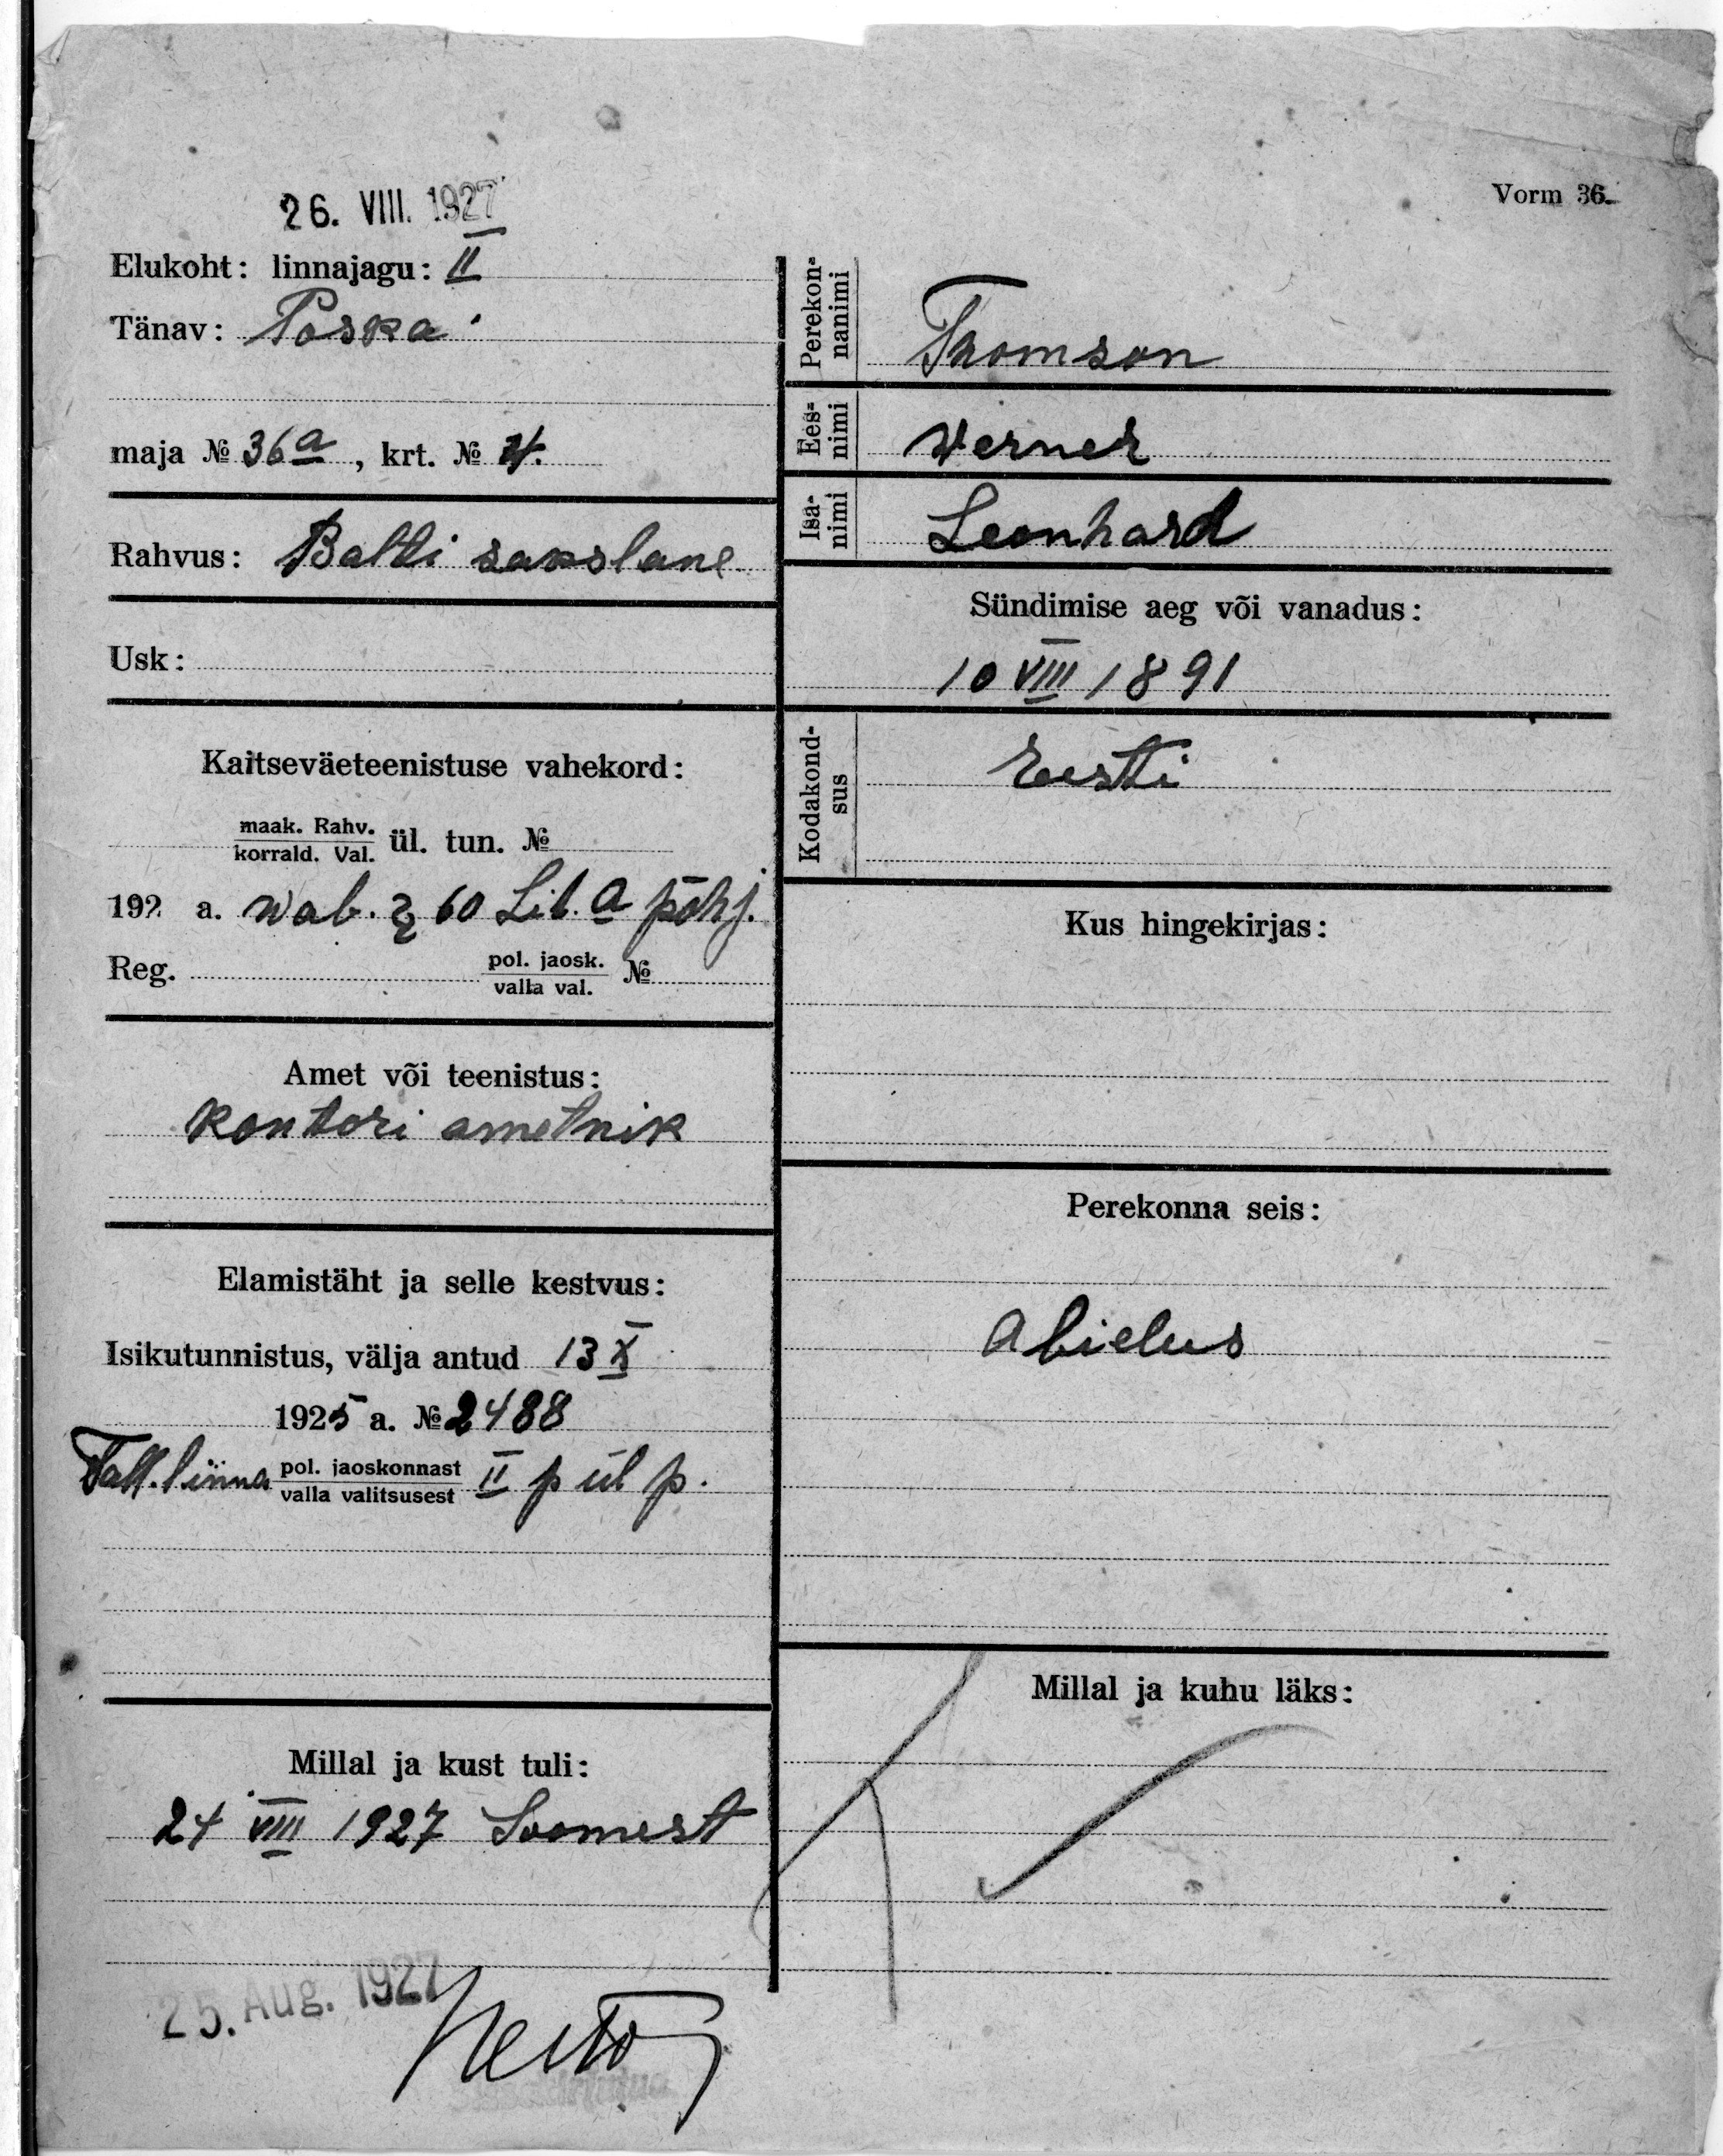 Vorm 36.
26. VIII. 1927
Elukoht: linnajagu: II
Tänav: Poska
maja № 36a, krt. № 4.
Rahvus: Balti sakslane
Usk:
Kaitseväeteenistuse vahekord:
maak. Rahv.
korrald. Val. ül. tun. №
192 a. wab. § 60 Lit. a põhj.
Reg. pol. jaosk. №
valla val.
Amet või teenistus:
kontori ametnik
Elamistäht ja selle kestvus:
Isikutunnistus, välja antud 13 X
1925 a. № 2488
Tall. linna pol. jaoskonnast II p ül p.
valla valitsusest
Millal ja kust tuli:
24 VIII 1927 Soomest
25. Aug. 1927
Perekon-
nanimi
Thomson
Ees-
nimi
Werner
Isa-
nimi
Leonhard
Sündimise aeg või vanadus:
10 VIII 1891
Kodakond-
sus
Eesti
Kus hingekirjas:
Perekonna seis:
Abielus
Millal ja kuhu läks: